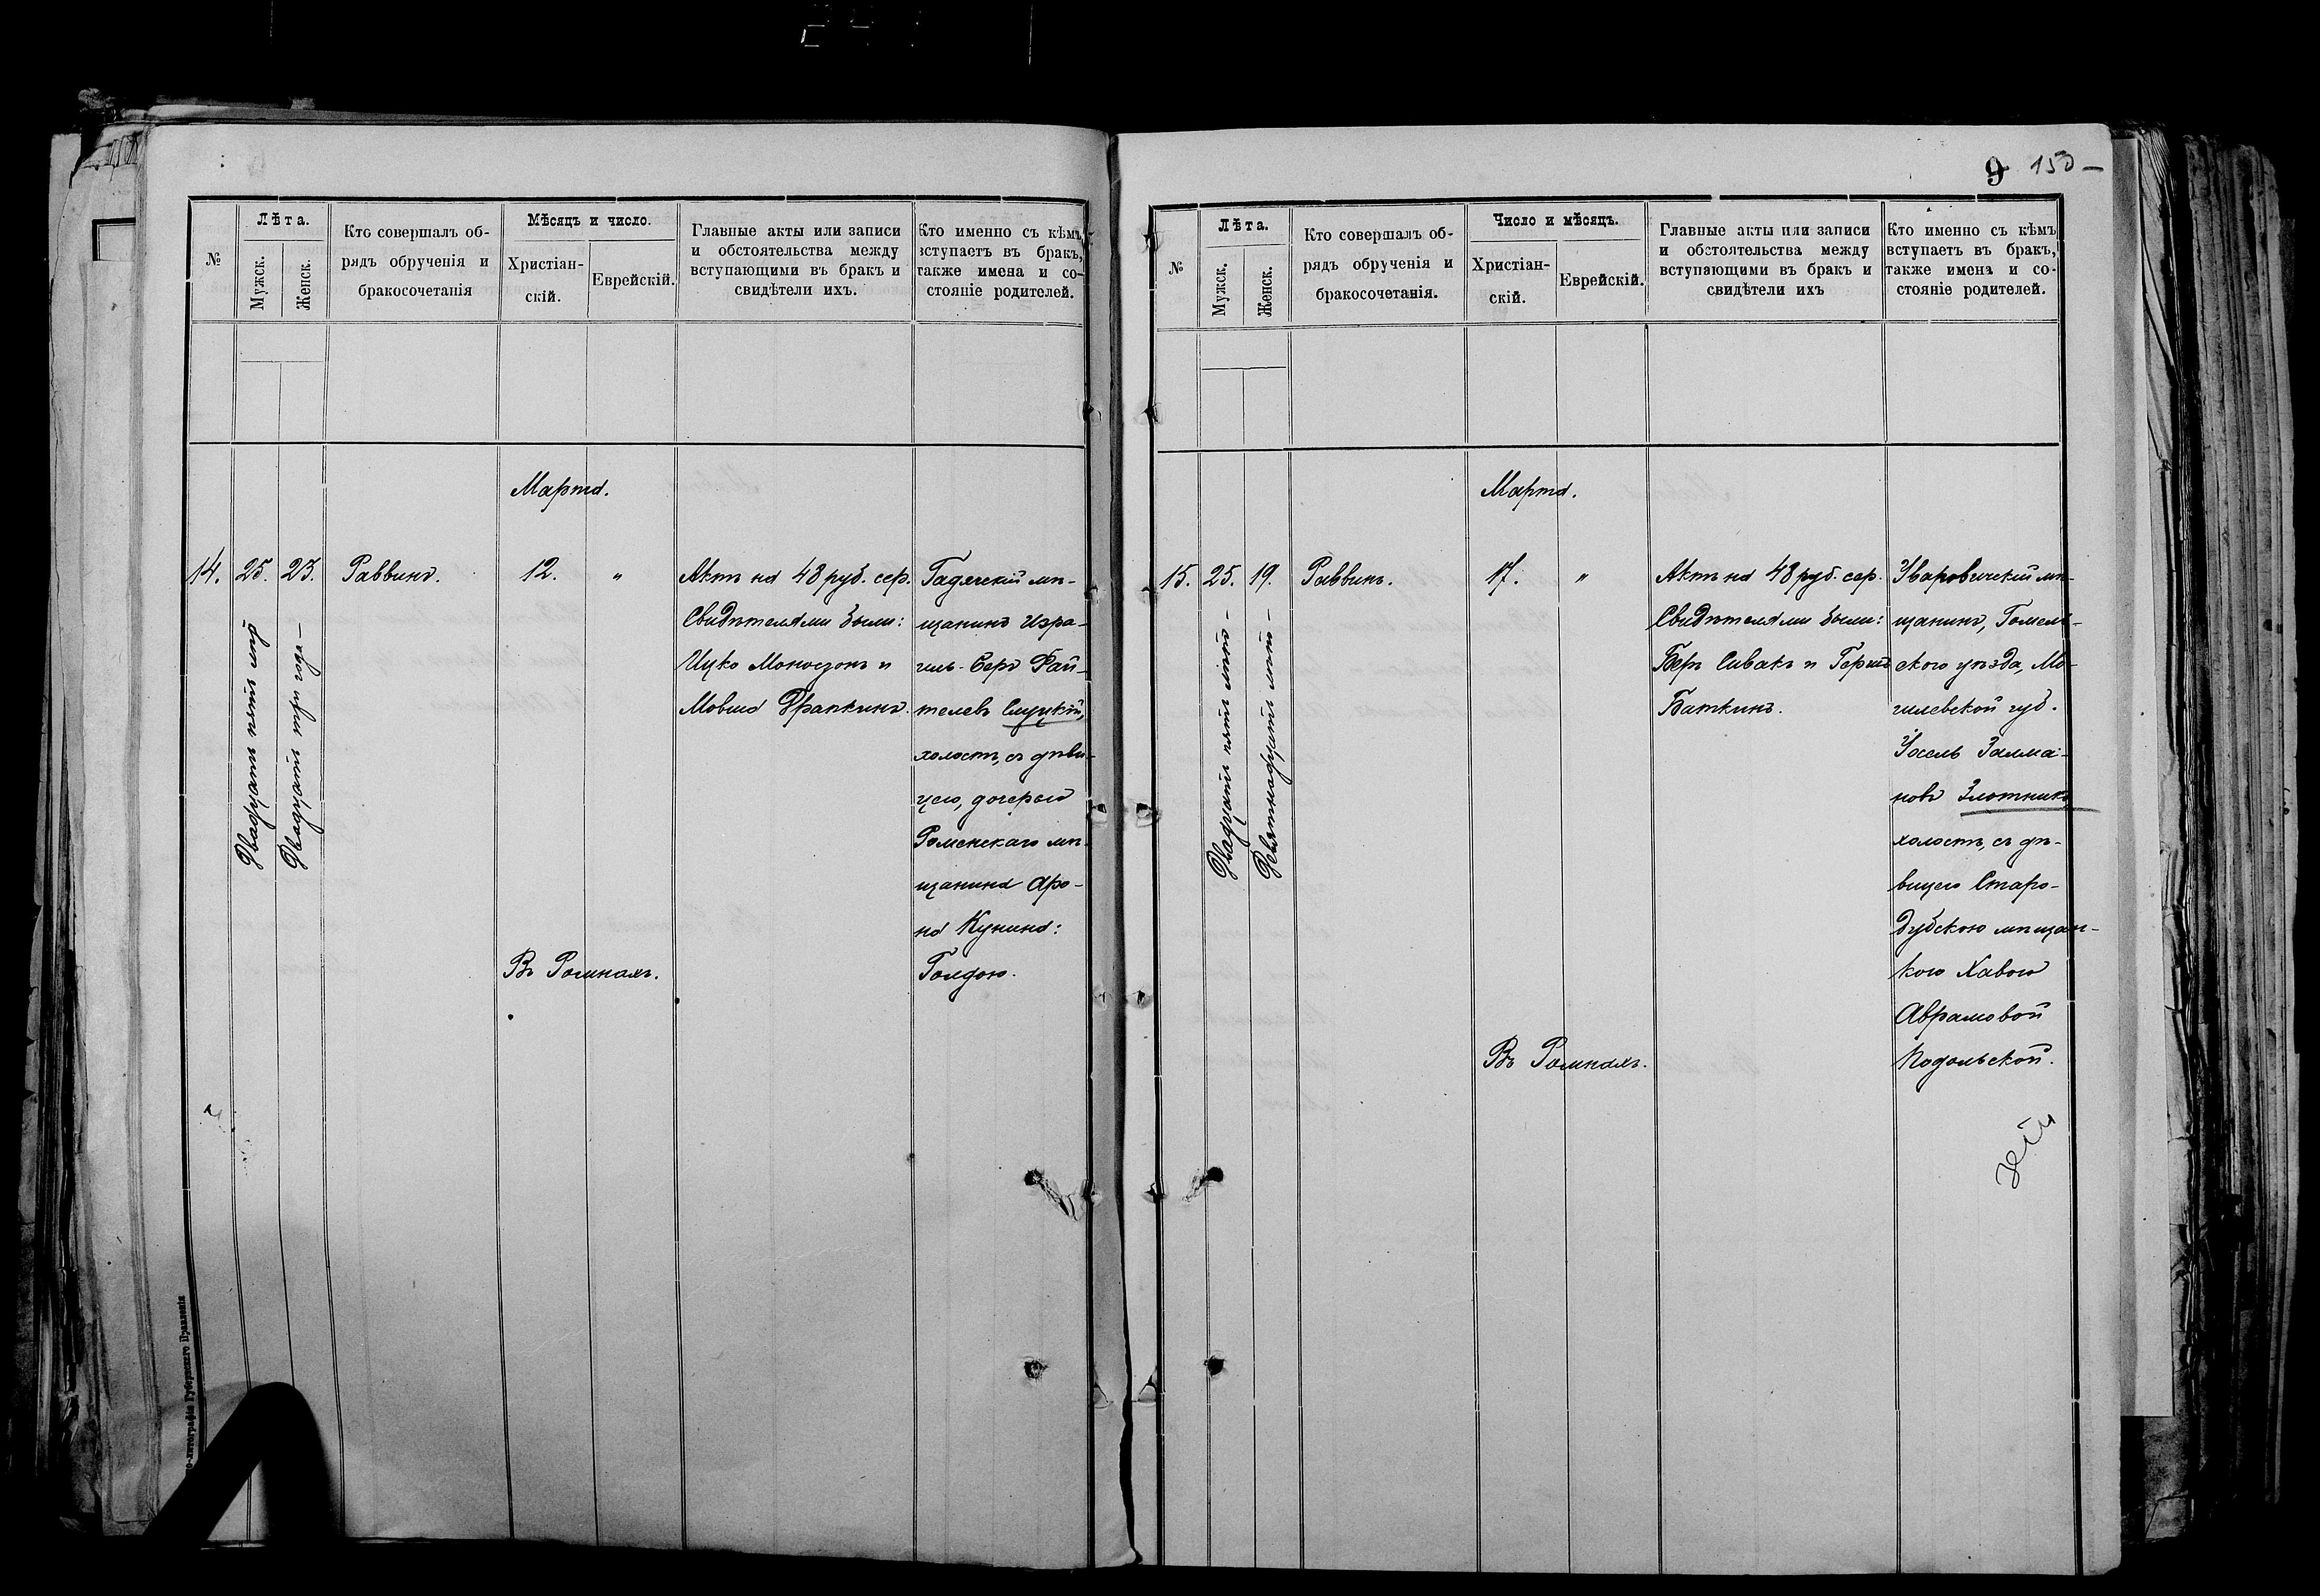 №
Лѣта.
Мужск.
Женск.
Кто совершалъ об-
рядъ обрученія и
бракосочетанія
Мѣсяцъ и число.
Христіан-
скій.
Еврейскій.
Главные акты или записи
и обстоятельства между
вступающими въ бракъ и
свидѣтели ихъ.
Кто именно съ кѣмъ
вступаетъ въ бракъ,
также имена и со-
стояніе родителей.
Марта.
14.
25.
Двадцать пять лѣтъ
23.
Двадцать три года —
Раввинъ.
12.
"
Въ Ромнахъ.
Актъ на 48 руб. сер.
Свидѣтелями были:
Ицко Моносзонъ и
Мовша Драпкинъ.
Гадячскій мѣ-
щанинъ Изра-
иль-Беръ Фай-
телевъ Слуцкій,
холостъ, съ дѣви-
цею, дочерью
Роменскаго мѣ-
щанина Аро-
на Кунина:
Голдою.
о-литографія Губернскаго Правленія
9 150 —
№
Лѣта.
Мужск.
Женск.
Кто совершалъ об-
рядъ обрученія и
бракосочетанія.
Число и мѣсяцъ.
Христіан-
скій.
Еврейскій.
Главные акты или записи
и обстоятельства между
вступающими въ бракъ и
свидѣтели ихъ
Кто именно съ кѣмъ
вступаетъ въ бракъ,
также имена и со-
стояніе родителей.
Марта.
15.
25.
Двадцать пять лѣтъ —
19.
Девятнадцать лѣтъ —
Раввинъ.
17.
"
Въ Ромнахъ.
Актъ на 48 руб. сер.
Свидѣтелями были:
Беръ Сивакъ и Герш
Баткинъ.
Уваровичскій мѣ-
щанинъ, Гомель-
скаго уѣзда, Мо-
гилевской губ.
Іосель Залма-
новъ Злотникъ
холостъ, съ дѣ-
вицею Старо-
дубскою мѣщан-
кою Хавою
Аврамовой
Подольской.